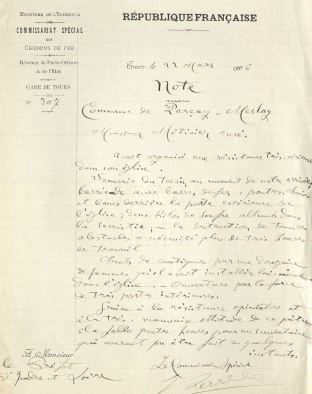 MINISTÈRE DE L'INTÉRIEUR
COMMISSARIAT SPÉCIAL
DES
CHEMINS DE FER
Réseaux de Paris-Orléans
& de l'État
GARE DE TOURS
N° 307
RÉPUBLIQUE FRANÇAISE
Tours, le 22 Mars 1906
Note
Commune de Parçay-Meslay
Monsieur Métivier curé.
Avait organisé une résistance très sérieuse
dans son église.
Sonnerie du tocsin au moment de notre arrivée,
barricade avec barres de fer, poutres, chaises
et bancs derrière la porte extérieure de
l'église; deux kilos de soufre allumés dans
la sacristie; - la destruction de tous ces
obstacles a nécessité plus de trois heures
de travail.
Chants de cantiques par une douzaine
de femmes qu'il avait installées lui-même
dans l'église. - Ouverture par la force
de trois portes intérieures.
Grâce à la résistance opiniâtre et
à la très mauvaise attitude de ce prêtre
il a fallu quatre heures pour un inventaire
qui aurait pu être fait en quelques
instants.
Le Commissaire Spécial
À Monsieur
le Préfet
d'Indre et Loire